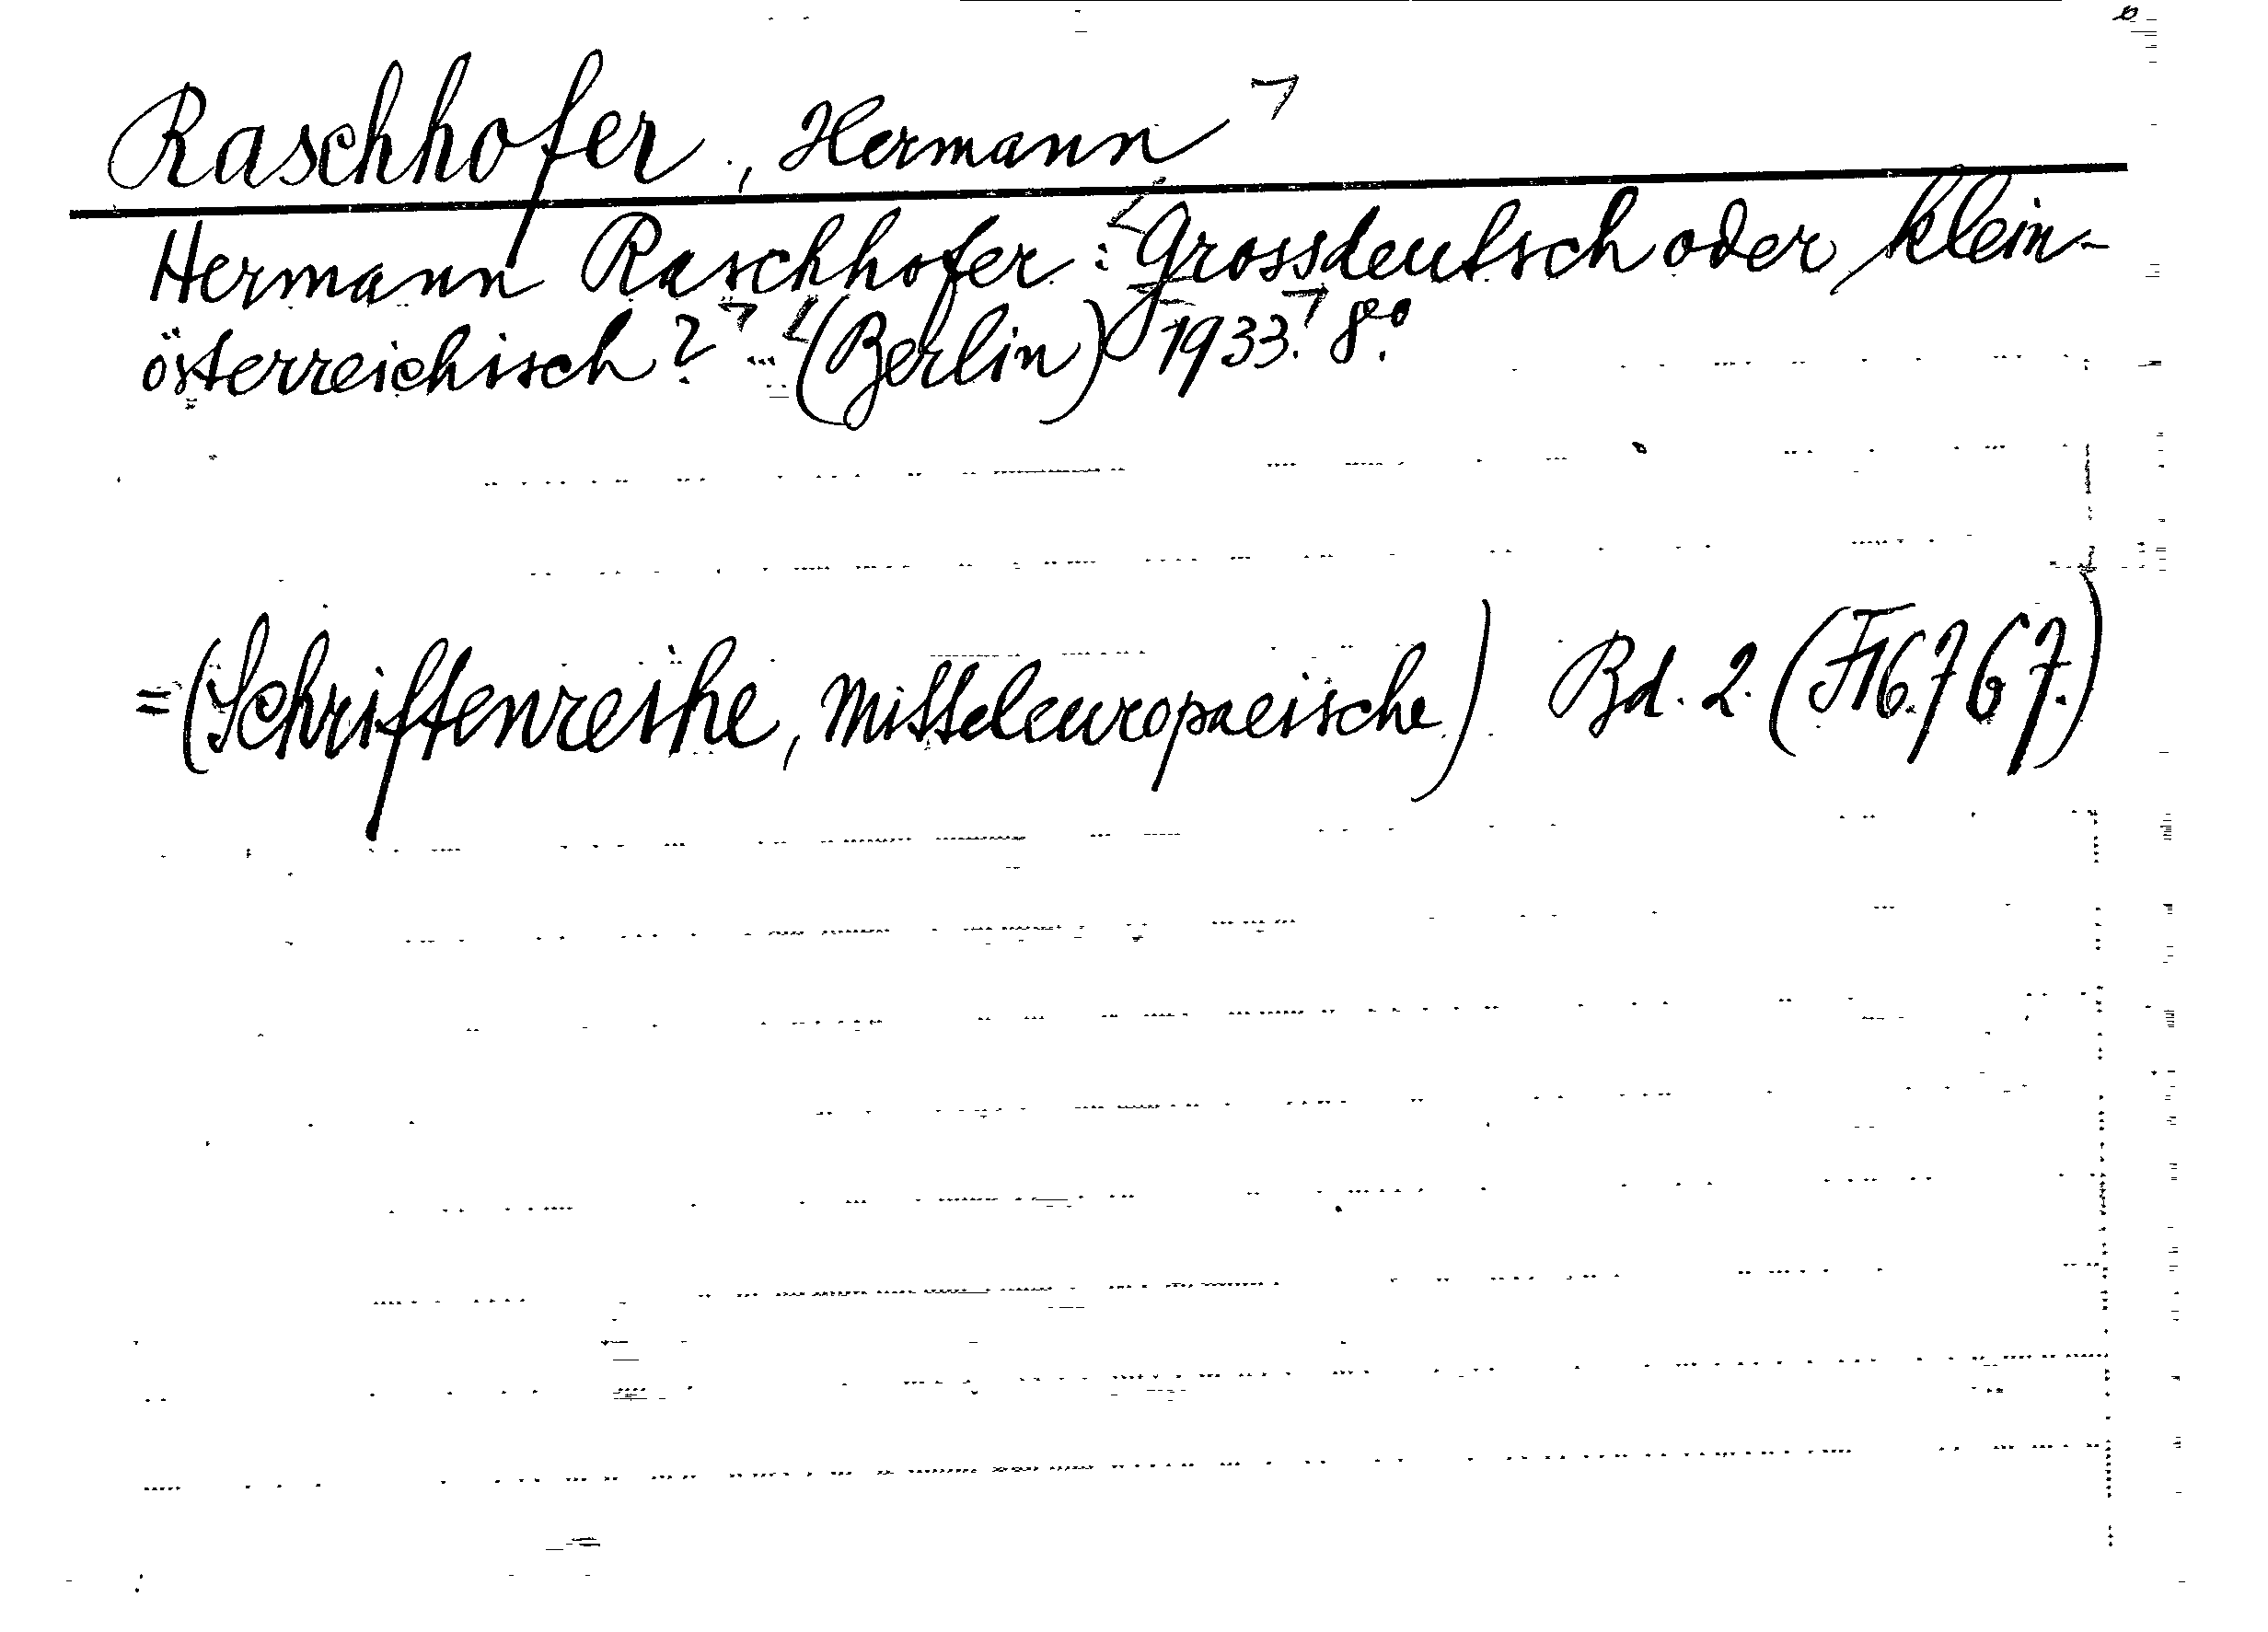 Raschhofer, Hermann
Hermann Raschhofer: Grossdeutsch oder klein-
österreichisch? ... (Berlin) 1933. 8°.
=(Schriftenreihe, Mitteleuropaeische) Bd. 2. (F16.767.)